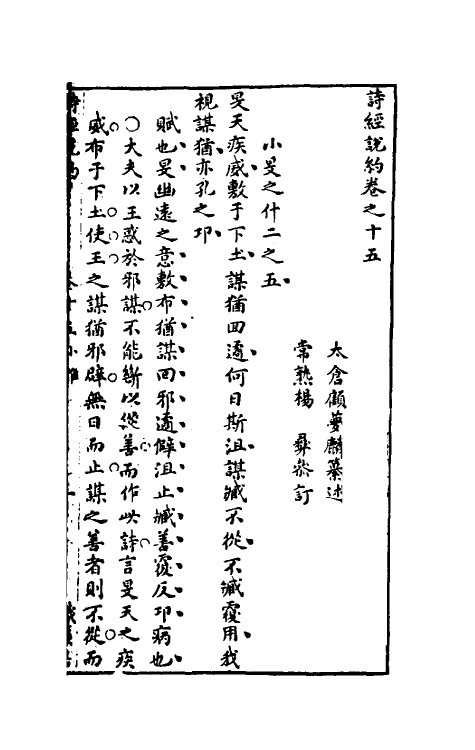 詩經說約卷之十五
太倉顧夢麟纂述
常熟楊彝參訂
小旻之什二之五
旻天疾威敷于下土謀猶回遹何日斯沮謀臧不從不臧覆用我
視謀猶亦孔之邛
賦也旻幽遠之意敷布猶謀回邪遹僻沮止臧善覆反邛病也
○大夫以王惑於邪謀不能斷以從善而作此詩言旻天之疾
威布于下土使王之謀猶邪辟無日而止謀之善者則不從而